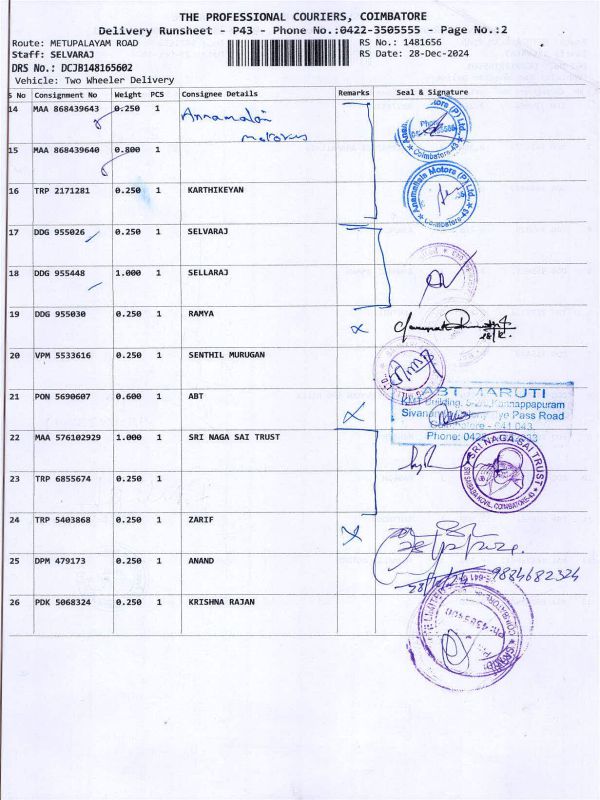 THE PROFESSIONAL COURIERS, COIMBATORE
Delivery Runsheet - P43 - Phone No.:0422-3505555 - Page No.:2
Route: METUPALAYAM ROAD RS No.: 1481656
Staff: SELVARAJ RS Date: 28-Dec-2024
DRS No.: DCJB148165602
Vehicle: Two Wheeler Delivery
S No Consignment No Weight PCS Consignee Details Remarks Seal & Signature
14 MAA 868439643 0.250 1 Annamalai
Motors
15 MAA 868439640 0.800 1
16 TRP 2171281 0.250 1 KARTHIKEYAN
17 DDG 955026 0.250 1 SELVARAJ
18 DDG 955448 1.000 1 SELLARAJ
19 DDG 955030 0.250 1 RAMYA
20 VPM 5533616 0.250 1 SENTHIL MURUGAN
21 PON 5690607 0.600 1 ABT
22 MAA 576102929 1.000 1 SRI NAGA SAI TRUST
23 TRP 6855674 0.250 1
24 TRP 5403868 0.250 1 ZARIF
25 DPM 479173 0.250 1 ANAND
26 PDK 5068324 0.250 1 KRISHNA RAJAN
Anamallais Motors (P) Ltd.,
Coimbatore-43
Anamallais Motors (P) Ltd.,
Coimbatore-43
ABT MARUTI
KMT Building, Kannappapuram
Pass Road
Coimbatore - 641 043.
Phone: 0422
SRI NAGA SAI TRUST
SRI SAIBABA KOVIL, COIMBATORE-43
28/12/2024.
9884682324